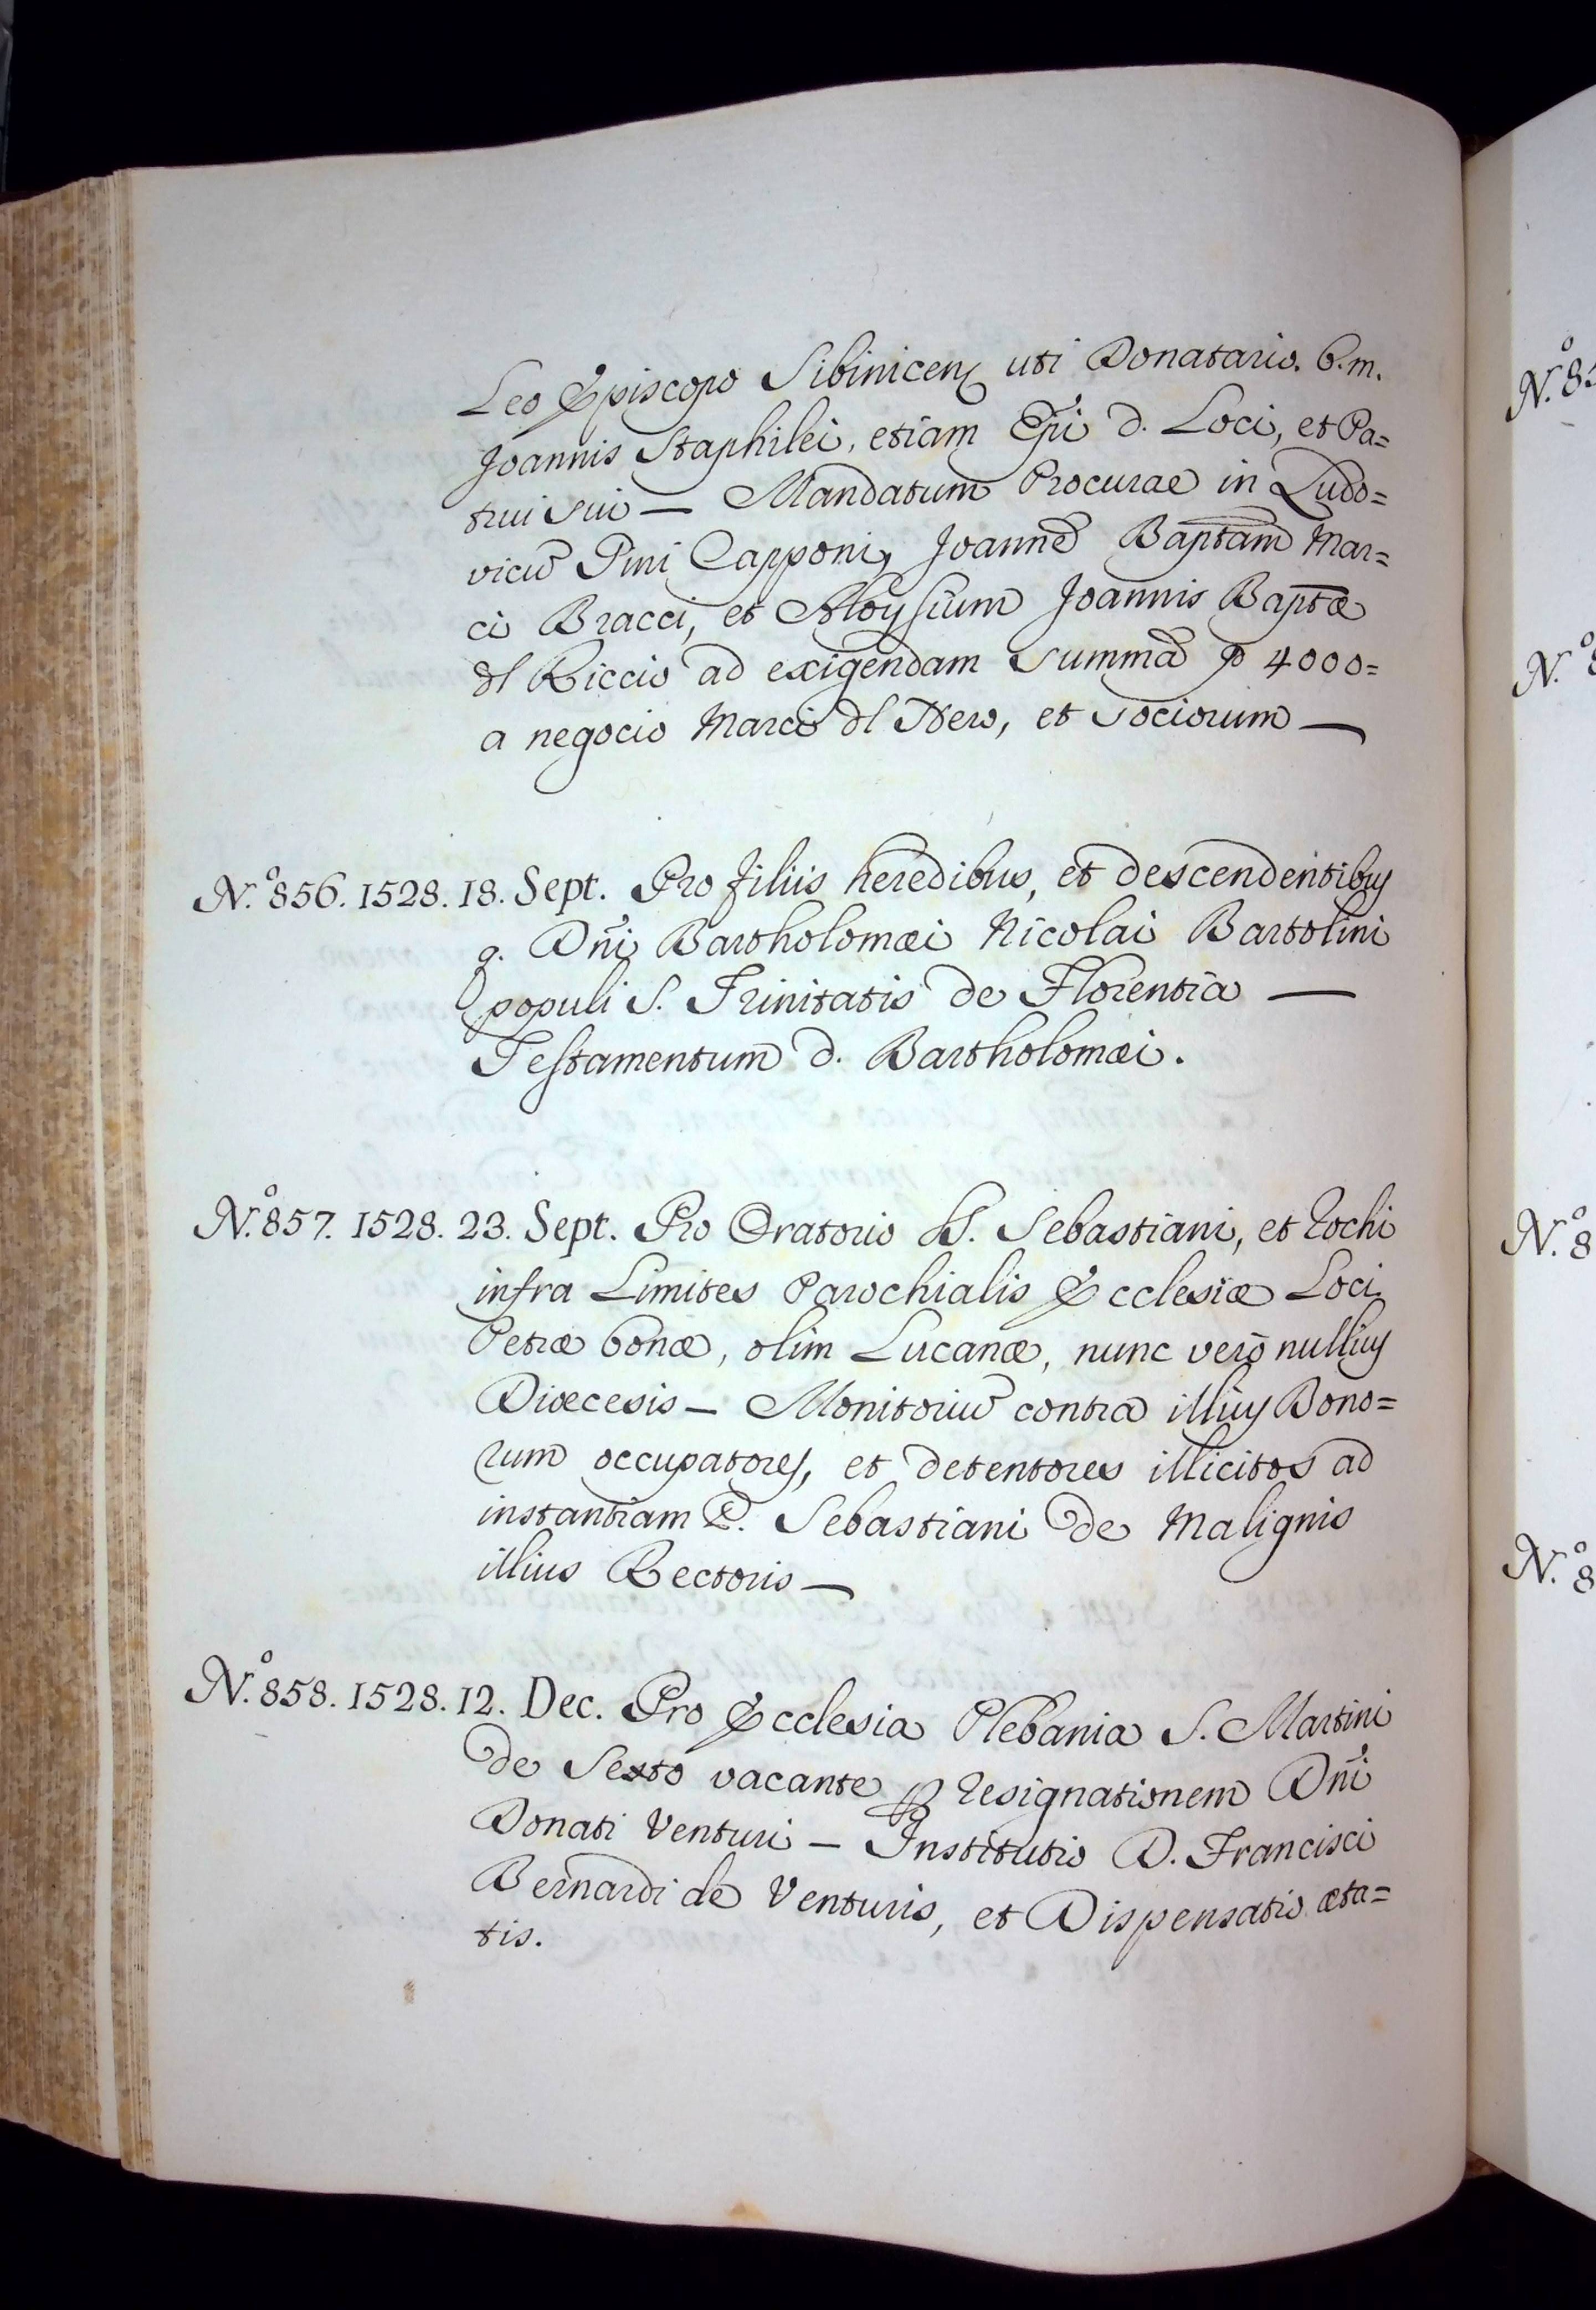 Leo Episcopo Sibinicen; uti Donatario. b.m.
Joannis Staphilei, etiam Epi d. Loci, et Pa=
trui sui — Mandatum Procurae in Ludo=
vicũ Pini Capponi, Joannẽ Baptam Mar=
ci Bracci, et Aloysium Joannis Baptæ
dl Riccio ad exigendam summã p 4000=
a negocio Marci dl Nero, et sociorum —
N.º 856. 1528. 18. Sept. Pro filiis heredibus, et descendentibus
q. Dñi Bartholomæi Nicolai Bartolini
populi S. Trinitatis de Florentia —
Testamentum d. Bartholomæi.
N.º 857. 1528. 23. Sept. Pro Oratorio SS. Sebastiani, et Rochi
infra Limites Parochialis Ecclesiæ Loci
Petræ bonæ, olim Lucanæ, nunc verò nullius
Diœcesis — Monitoriũ contra illius Bono=
rum occupatores, et detentores illicitos ad
instantiam D. Sebastiani de Malignis
illius Rectoris —
N.º 858. 1528. 12. Dec. Pro Ecclesia Plebania S. Martini
de Sexto vacante p Resignationem Dñi
Donati Venturi — Institutio D. Francisci
Bernardi de Venturis, et Dispensatio æta=
tis.
N.º 8
N.º
N.º 8
N.º 8